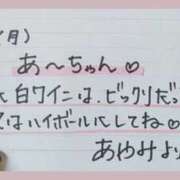 (月)
あ～ちゃん♡
白ワインは、ビックリだっ
はハイボールにしてね♡
あゆみより